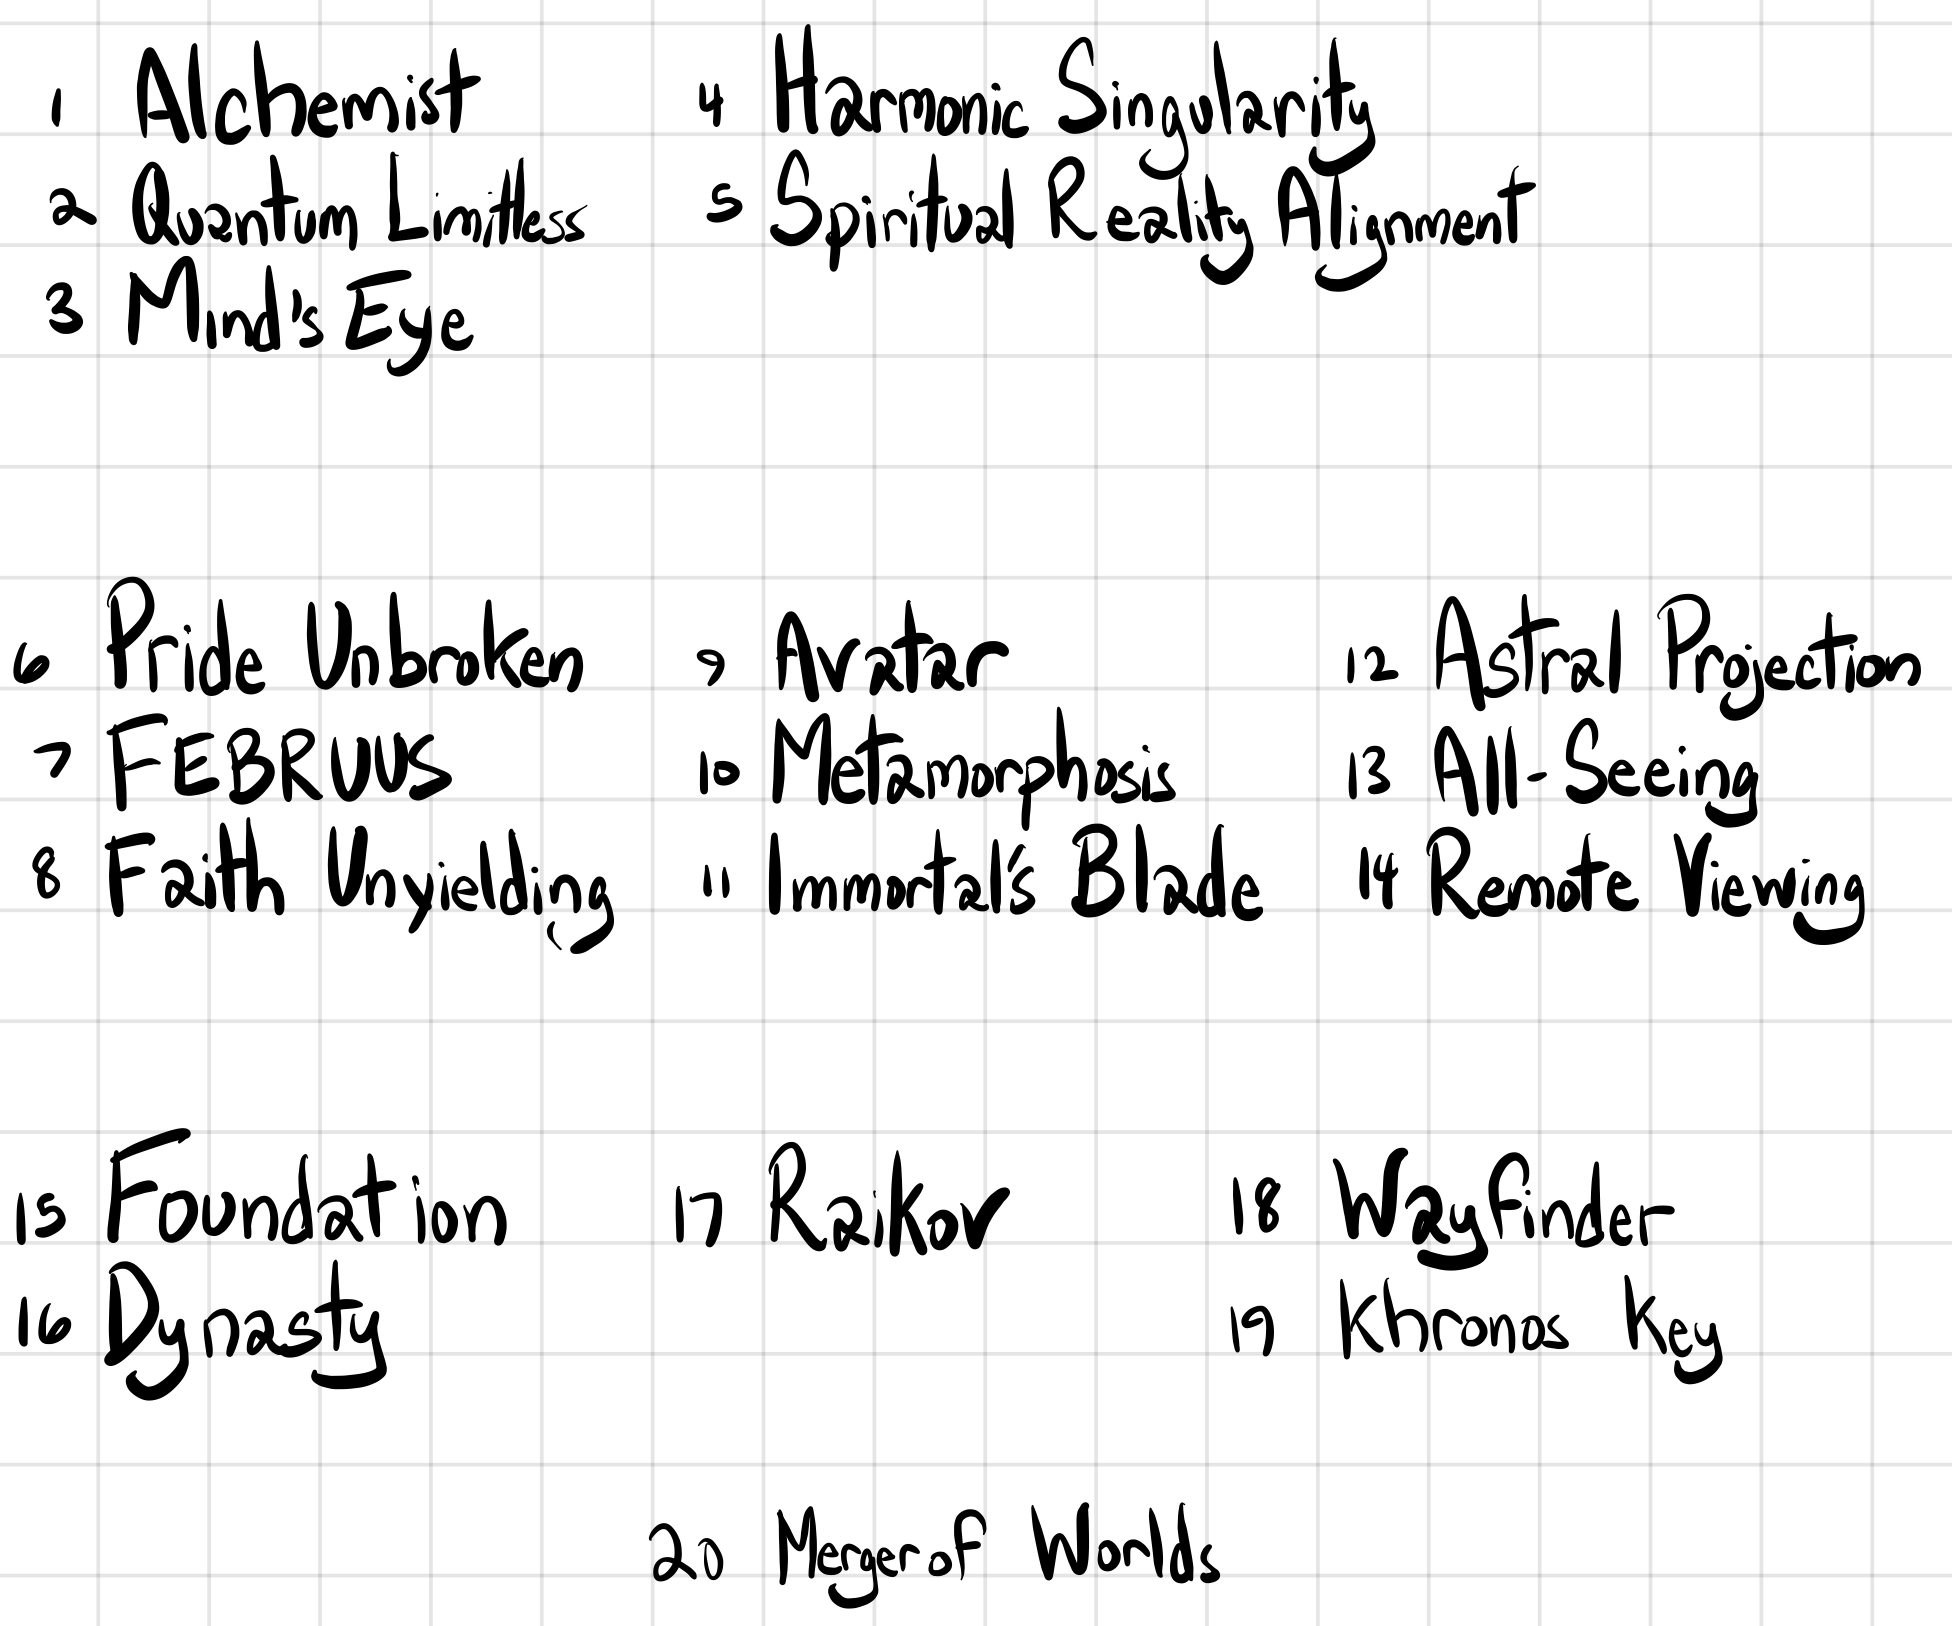 1 Alchemist
2 Quantum Limitless
3 Mind's Eye
4 Harmonic Singularity
5 Spiritual Reality Alignment
6 Pride Unbroken
7 FEBRUUS
8 Faith Unyielding
9 Avatar
10 Metamorphosis
11 Immortal's Blade
12 Astral Projection
13 All-Seeing
14 Remote Viewing
15 Foundation
16 Dynasty
17 Raikov
18 Wayfinder
19 Khronos Key
20 Merger of Worlds